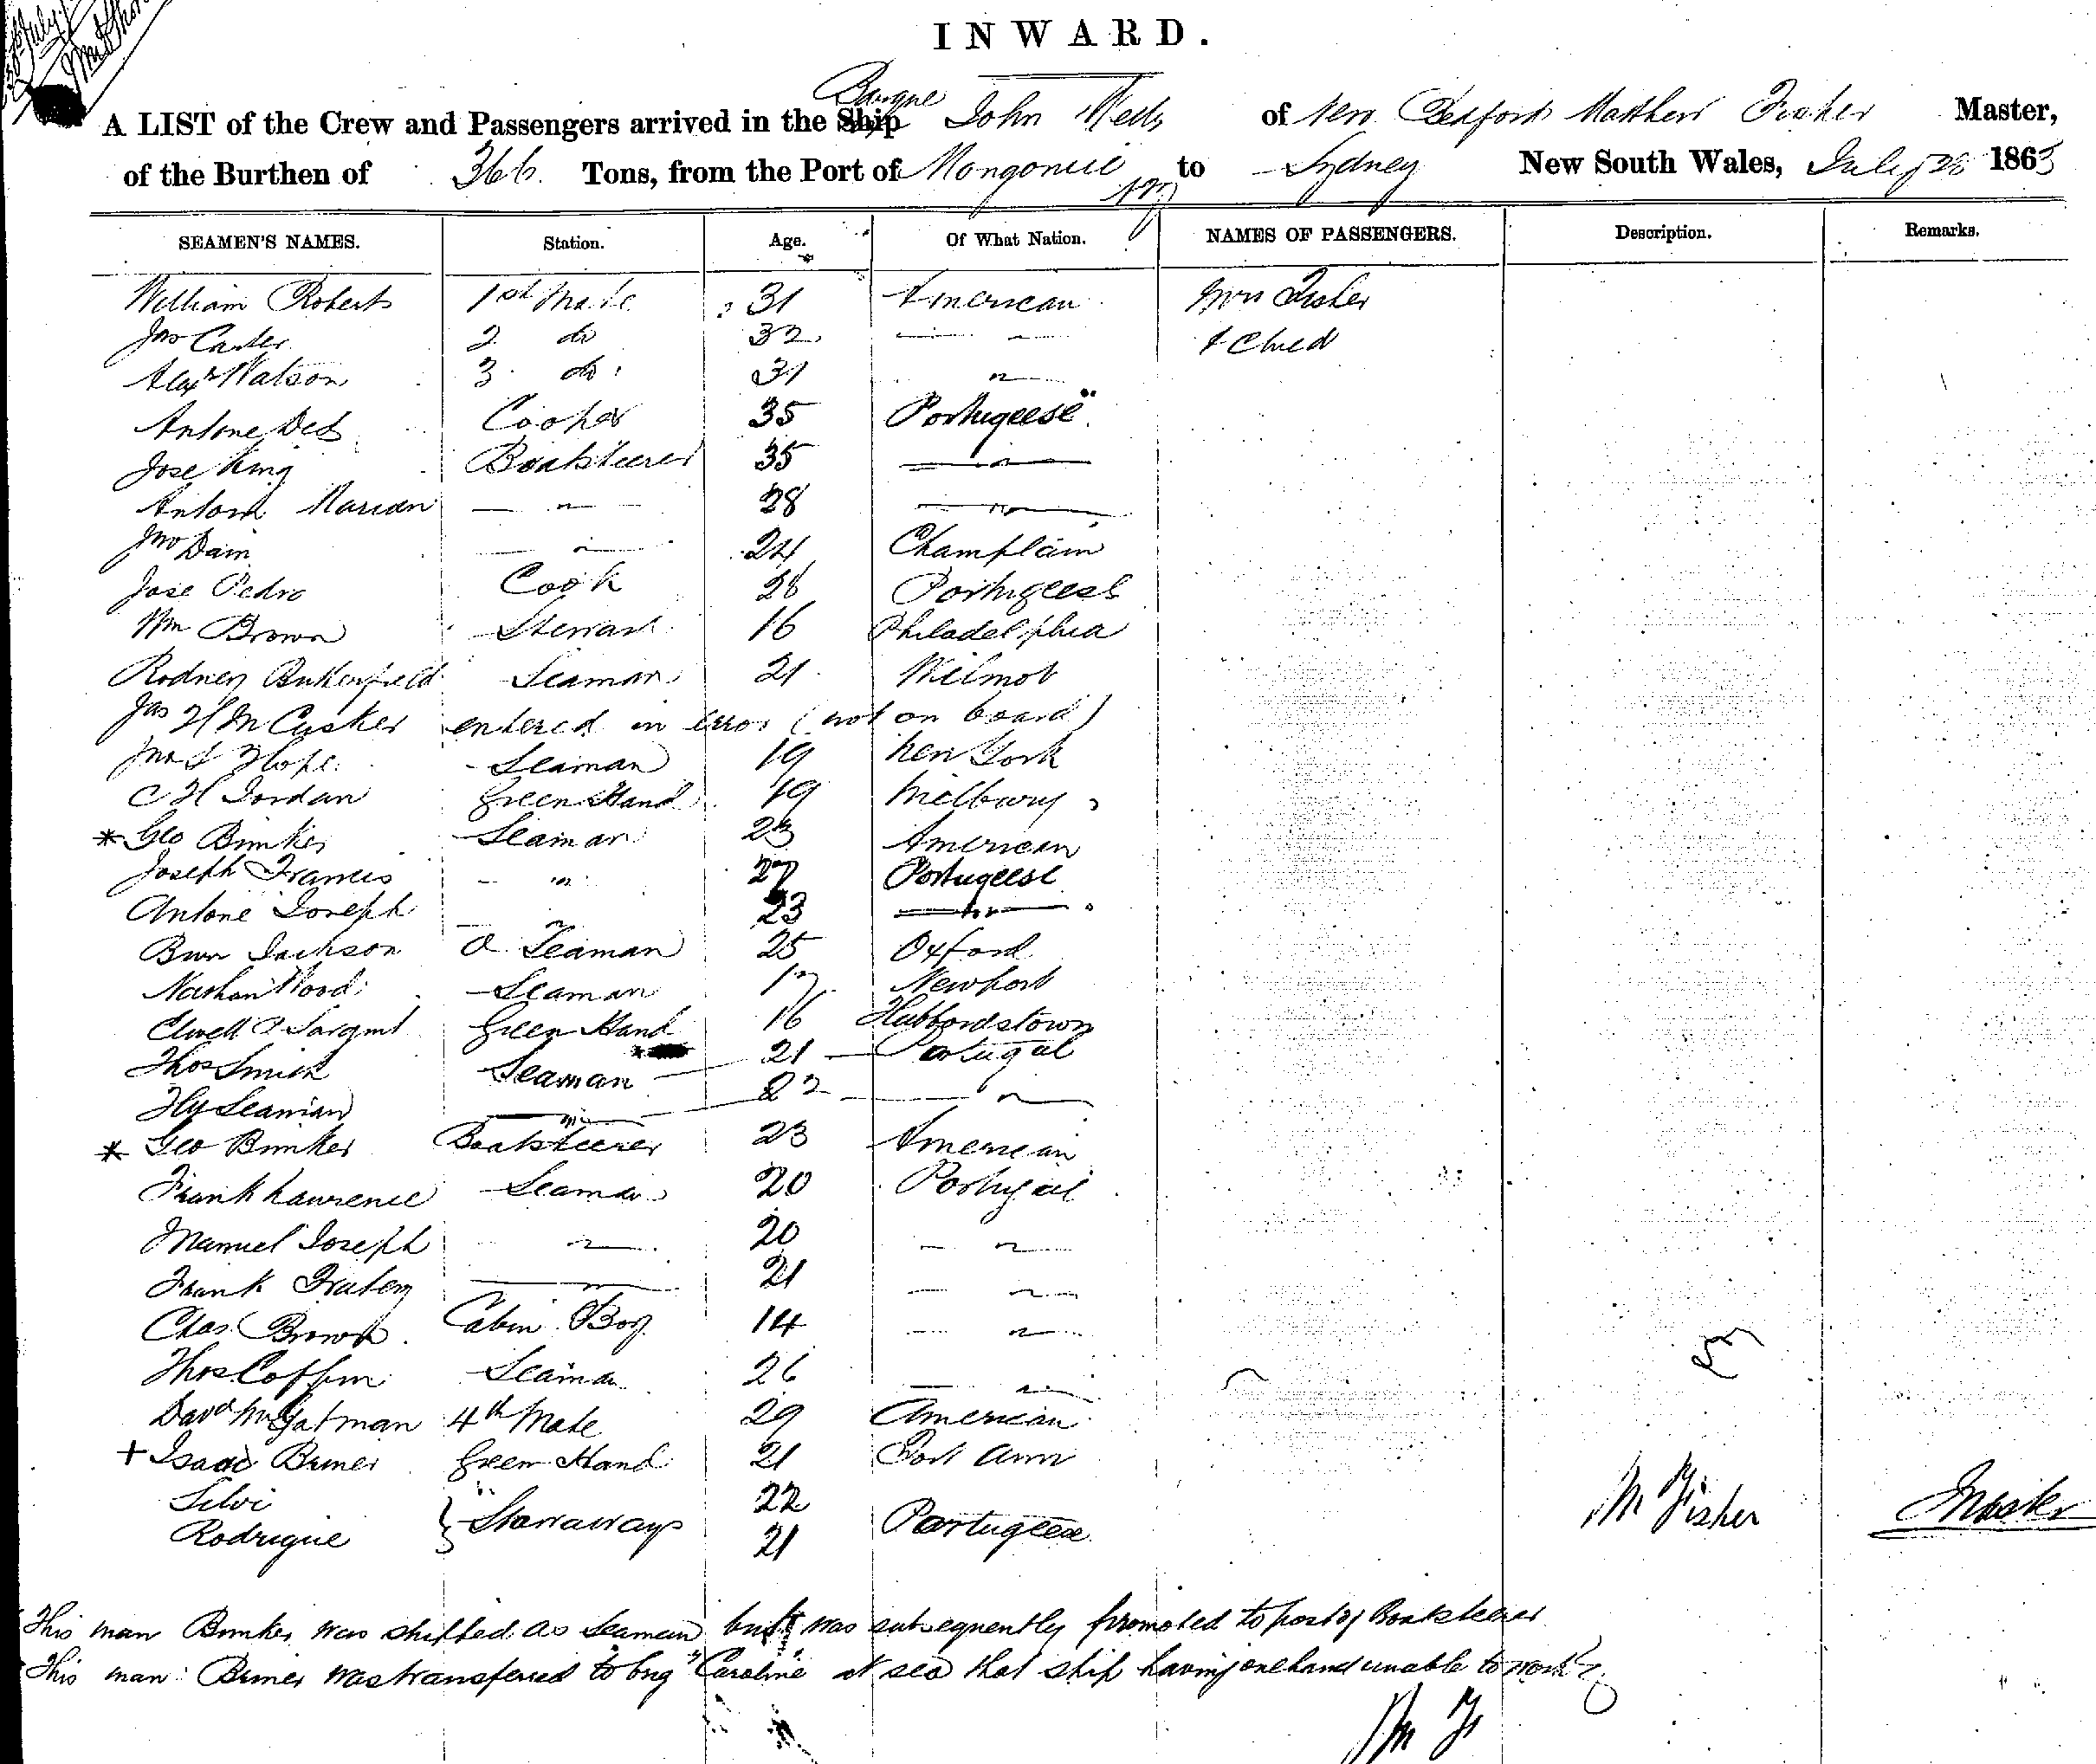 INWARD.
A LIST of the Crew and Passengers arrived in the Ship Barque John Wells of New Bedford Matthew Fisher Master,
of the Burthen of 366 Tons, from the Port of Mongonui NZ to Sydney New South Wales, July 28 1863
SEAMEN'S NAMES. Station. Age. Of What Nation. NAMES OF PASSENGERS. Description. Remarks.
William Roberts 1st Mate 31 American Mrs Fisher
Jno Carter 2 do 32 — " — & Child
Alexr Watson 3 do 31 "
Antone Cooper 35 Portugeese
Jose King Boatsteerer 35 — " —
Antone — " — 28 — " —
Jno Dain — " — 24 Champlain
Jose Pedro Cook 28 Portugeese
Wm Brown Steward 16 Philadelphia
Rodney Butterfield Seaman 21 Wilmot
Jas H McCusker entered in error (not on board)
Jno S Hope Seaman 19 New York
C H Jordan Green Hand 19 Milbury
* Geo Bunker Seaman 23 American
Joseph Francis — " 27 Portugeese
Antone Joseph — " 23 — " —
Benn Jackson O. Seaman 25 Oxford
Nathan Wood Seaman 17 Newport
Elwell P Sargent Green Hand 16 Hubbordstown
Thos Smith Seaman 21 Portugal
Hy Seaman — " — 22 — " —
* Geo Bunker Boatsteerer 23 American
Frank Lawrence Seaman 20 Portugal
Manuel Joseph — " — 20 — " —
Frank — " — 21 — " —
Chas Brown Cabin Boy 14 — " —
Thos Coffin Seaman 26 — " —
Davd Gatman 4th Mate 29 American
+ Isaac Bruner Green Hand 21 Ann
Silvi } Stowaways 22 Portugeese
Rodrigue 21
M Fisher Master
This man Bunker was shipped as Seaman but was subsequently promoted to post of Boatsteerer
This man Bruner was transferred to brig "Caroline" at sea that ship having one hand unable to work
M F